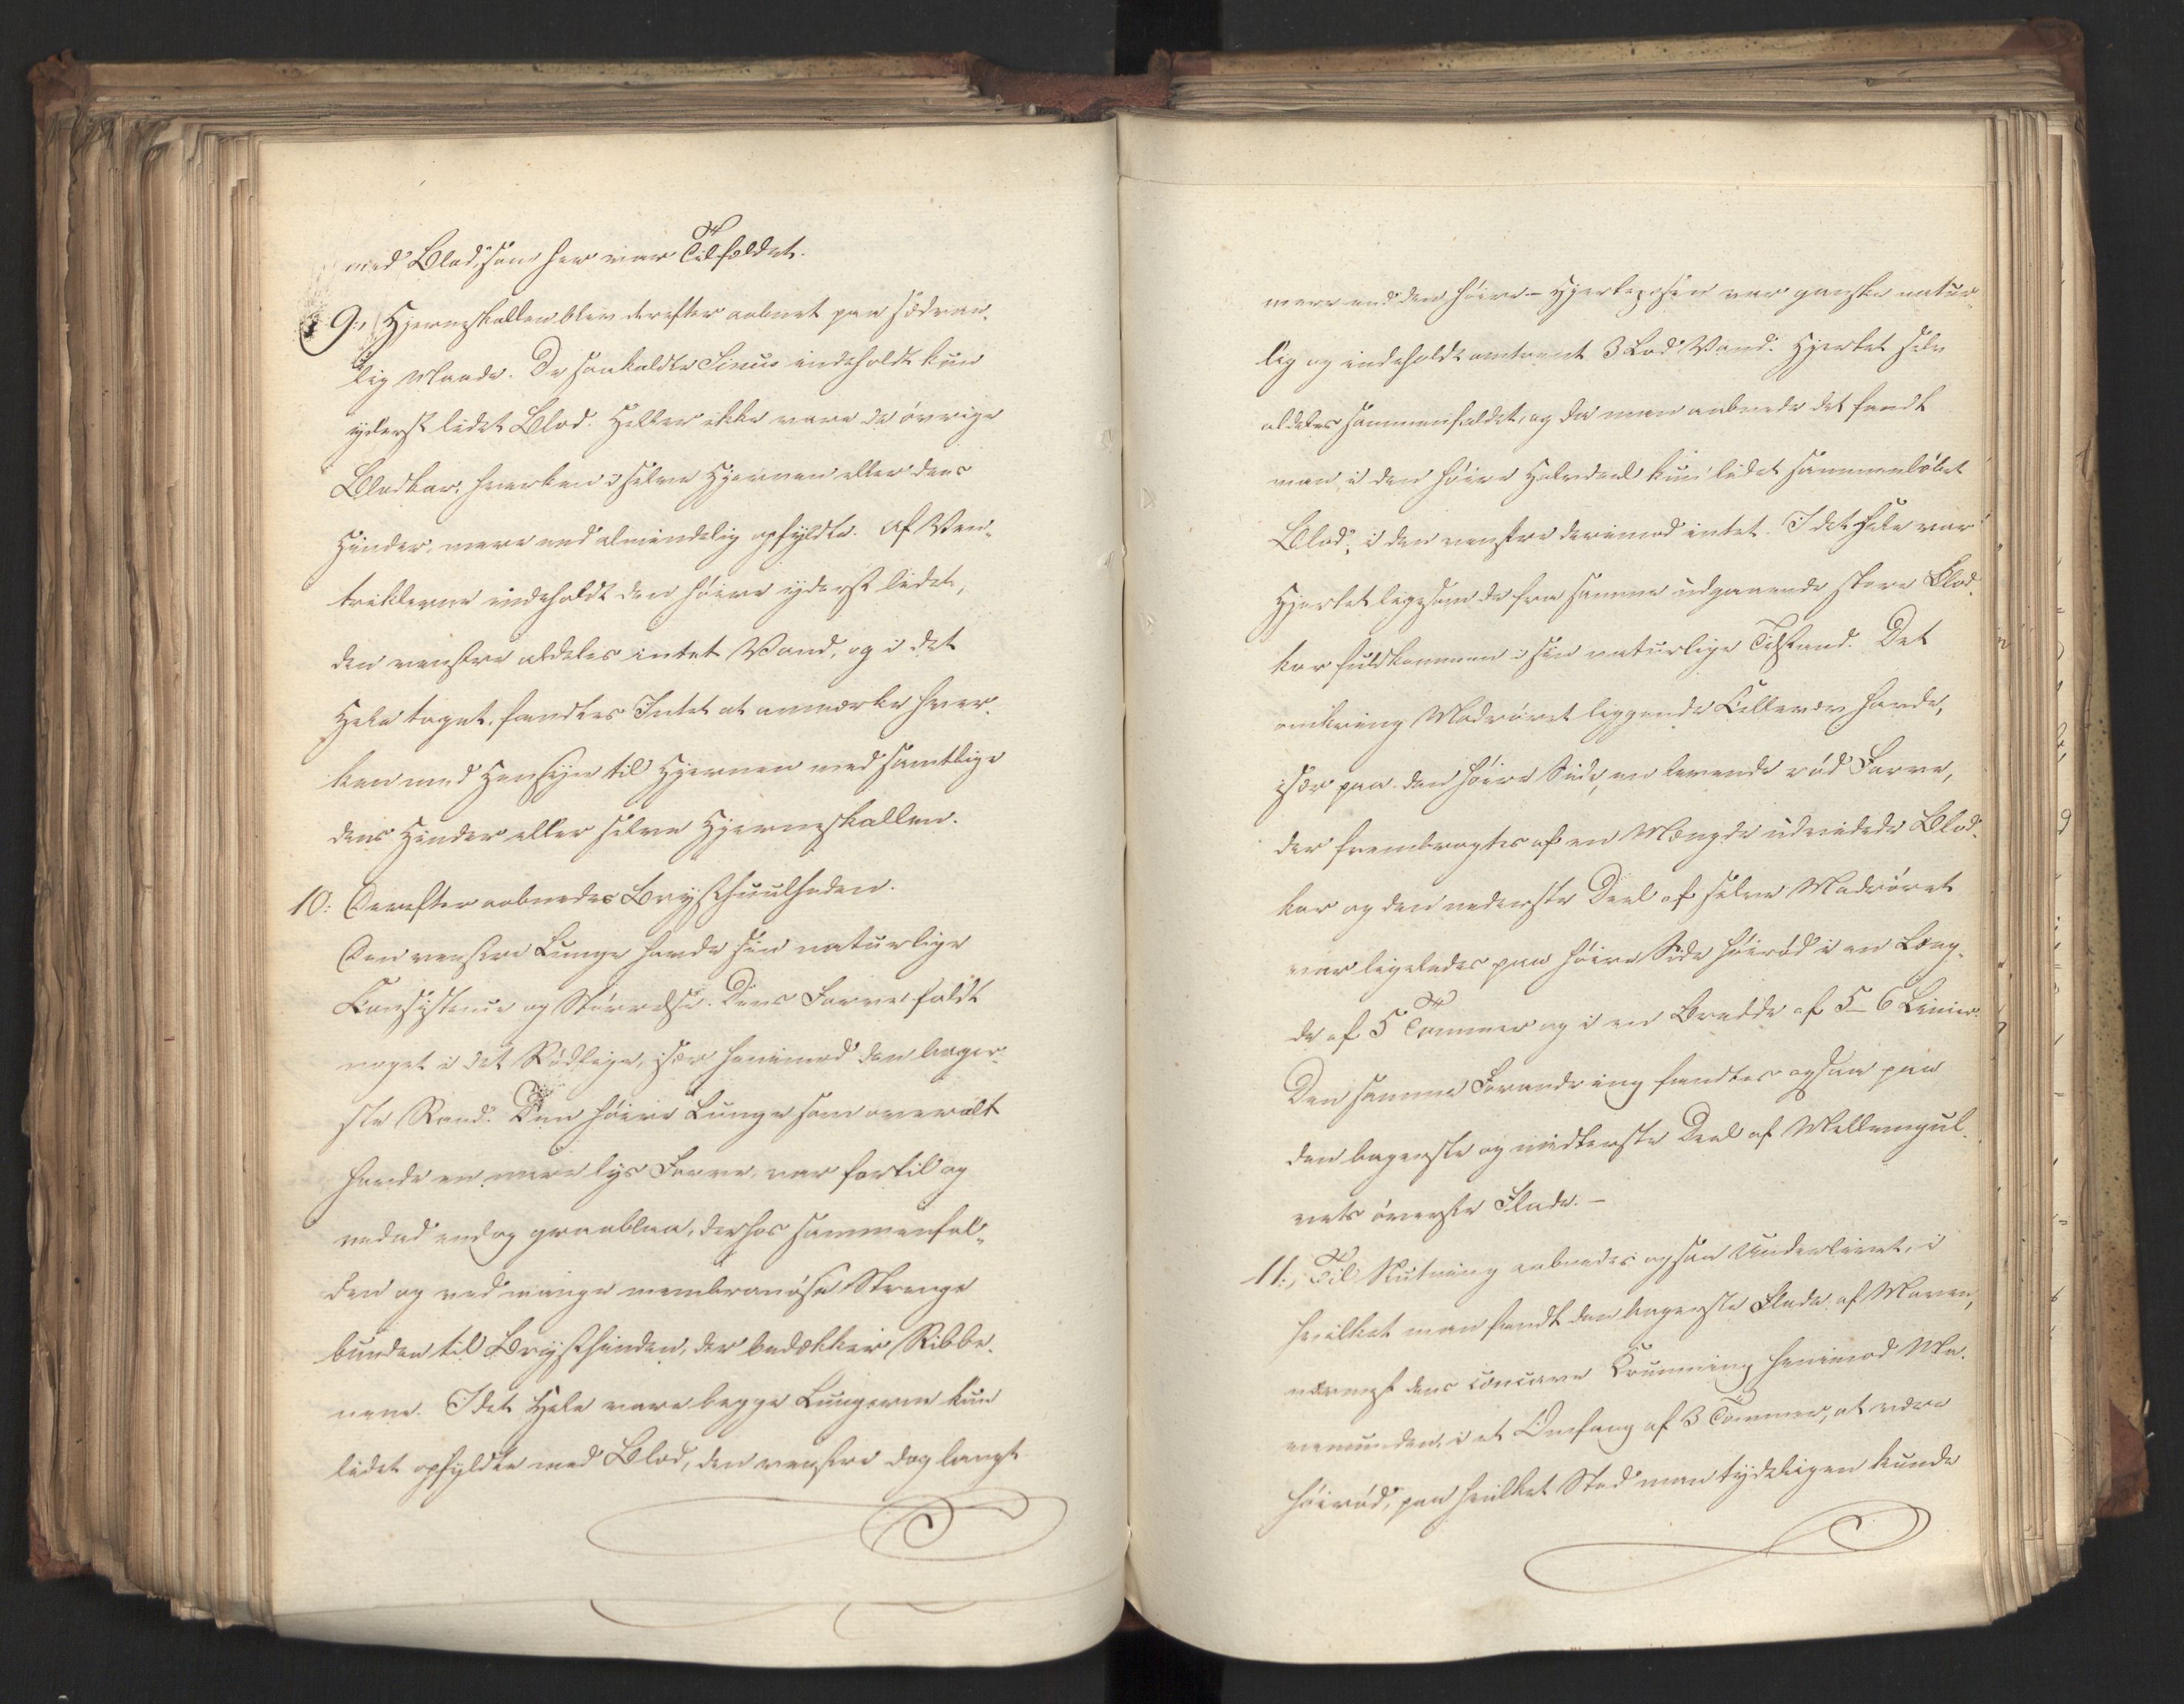 med Blod, som her var Tilfældet.
9., Hjerneskallen blev derefter aabnet paa sædvan-
lig Maade. De saakaldte Sinus indeholdt kun
yderst lidet Blod. Heller ikke vare de øvrige
Blodkar, hverken i selve Hjernen eller dens
Hinder, mere end almindelig opfyldte. Af Ven-
triklerne indeholdt den høire yderst lidet,
den venstre aldeles intet Vand, og i det
Hele taget, fandtes Intet at anmærke hver-
ken med Hensyn til Hjernen med samtlige
dens Hinder eller selve Hjerneskallen.
10: Derefter aabnedes Brysthuulheden.
Den venstre Lunge havde sin naturlige
Consistence og Størrelse. Dens Farve faldt
noget i det Rødlige, især henimod den bager-
ste Rand. Den høire Lunge som overalt
havde en mere lys Farve, var fortil og
nedad endog graablaa, derhos sammenfal-
den og ved mange membranøse Strenge
bunden til Brysthinden, der bedækker Ribbe-
nene. I det Hele vare begge Lungerne kun
lidet opfyldte med Blod, den venstre dog langt
mere end den høire – Hjerteposen var ganske natur-
lig og indeholdt omtrent 3 Lod Vand. Hjertet selv
aldeles sammenfaldet, og da man aabnede det fandt
man i den høire Halvdeel kun lidet sammenløbet
Blod, i den venstre derimod intet. I det Hele var
Hjertet ligesom de fra samme udgaaende store Blod-
kar fuldkommen i sin naturlige Tilstand. Det
omkring Madrøret liggende Cellevæv havde,
især paa den høire Side, en levende rød Farve,
der frembragtes af en Mængde udvidede Blod-
kar og den nederste Deel af selve Madrøret
var ligeledes paa høire Side høirød i en Læng-
de af 5 Tommer og i en Bredde af 5 – 6 Linier.
Den samme Forandring fandtes ogsaa paa
den bagerste og midterste Deel af Mellemgul-
vets øverste Flade. –
11., Til Slutning aabnedes ogsaa Underlivet, i
hvilket man fandt den bagerste Flade af Maven,
nærmest dens concave Krumning henimod Ma-
vemunden, i et Omfang af 3 Tommer, at være
høirød, paa hvilket Sted man tydeligen kunde